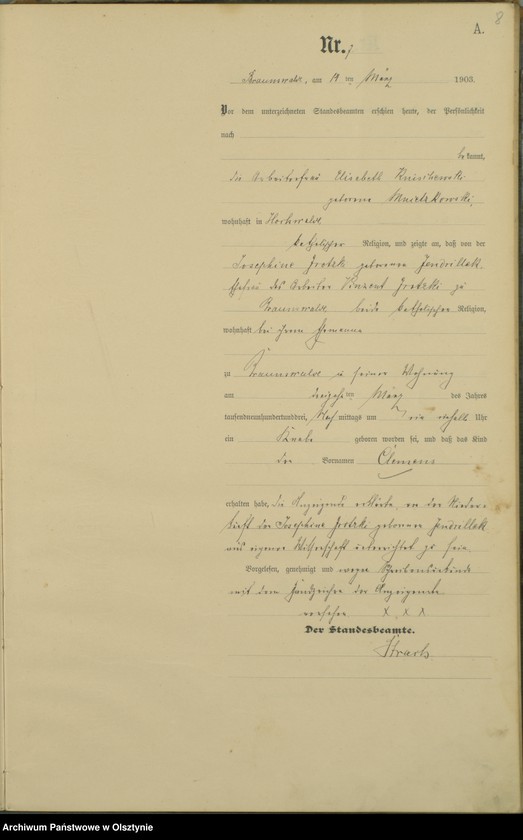 8
A.
Nr. 7
Braunswalde, am 19 ten März 1903.
Vor dem unterzeichneten Standesbeamten erschien heute, der Persönlichkeit
nach
bekannt,
die Arbeiterfrau Elisabeth
geborene
wohnhaft in Hochwalde
katholischer Religion, und zeigte an, daß von der
Josephine Grotzki geborenen Jendrillek
Ehefrau des Arbeiter Vinzent Grotzki zu
Braunswalde, beide katholischer Religion,
wohnhaft bei ihrem Ehemanne
zu Braunswalde in seiner Wohnung
am ten März des Jahres
tausendneunhundertunddrei, Nachmittags um ein halb Uhr
ein Knabe geboren worden sei, und daß das Kind
den Vornamen Clemens
erhalten habe, die Anzeigende erklärte, von der Nieder-
kunft der Josephine Grotzki geborenen Jendrillek
aus eigener Wissenschaft unterrichtet zu sein.
Vorgelesen, genehmigt und wegen Schreibensunkunde
mit dem Handzeichen der Anzeigende
versehen X X X
Der Standesbeamte.
Archiwum Państwowe w Olsztynie